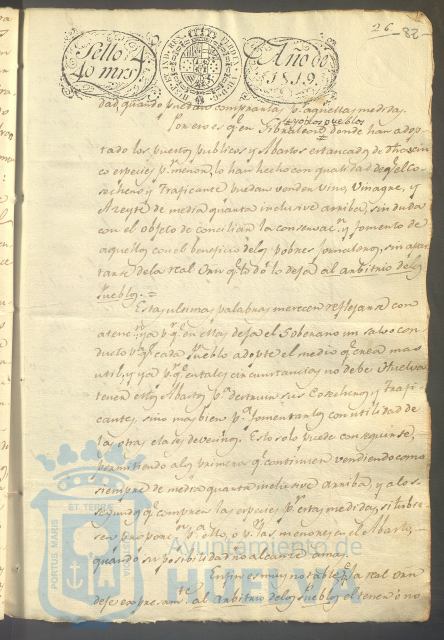 26 -82-
Sello 4º
40 mrs
Año de
1819.
dad, quando puedan comprarlas pr. aquellas medidas.
Por eso es qe. en Gibraleon, y otros pueblos donde han adop-
tado los puestos publicos y Abastos estancados de dhas. cin-
co especies pr. menor, lo han hecho con qualidad de qe. el Co-
sechero y Traficante puedan vender Vino, Vinagre, y
Azeyte de media quarta inclusive arriba, sin duda
con el objeto de conciliar la conservacn. y fomento de
aquellos con el beneficio de los pobres jornaleros, sin apar-
tarse de la real Orn qe. todo lo deja al arbitrio de los
Pueblos.=
Estas ultimas palabras merecen reflejarse con
atencn. ya pr. qe. en ellas deja el Soberano un salvo con-
ducto pa. qe. cada Pueblo adopte el medio qe. crea mas
util; y ya pr. qe. en tales circunstancias no debe Huelva
tener estos Abastos pa. destruir sus Cosecheros y Trafi-
cantes, sino mas bien pa. fomentarlos con utilidad de
la otra clase de vecinos. Esto solo puede conseguirse,
permitiendo a los primeros qe. continuen vendiendo como
siempre de media quarta inclusive arriba, y a los
segundos qe. compren las especies pr. estas medidas si tubie-
sen proporcn. pa. ello, o pr. las menores en el Abasto,
quando su posibilidad no alcance a mas.
En fin es muy notable qe. la real Orn
deje expresamte. al arbitrio de los Pueblos el tener o no
PORTUS MARIS
ET TERRAE
Ayuntamiento de
HUELVA